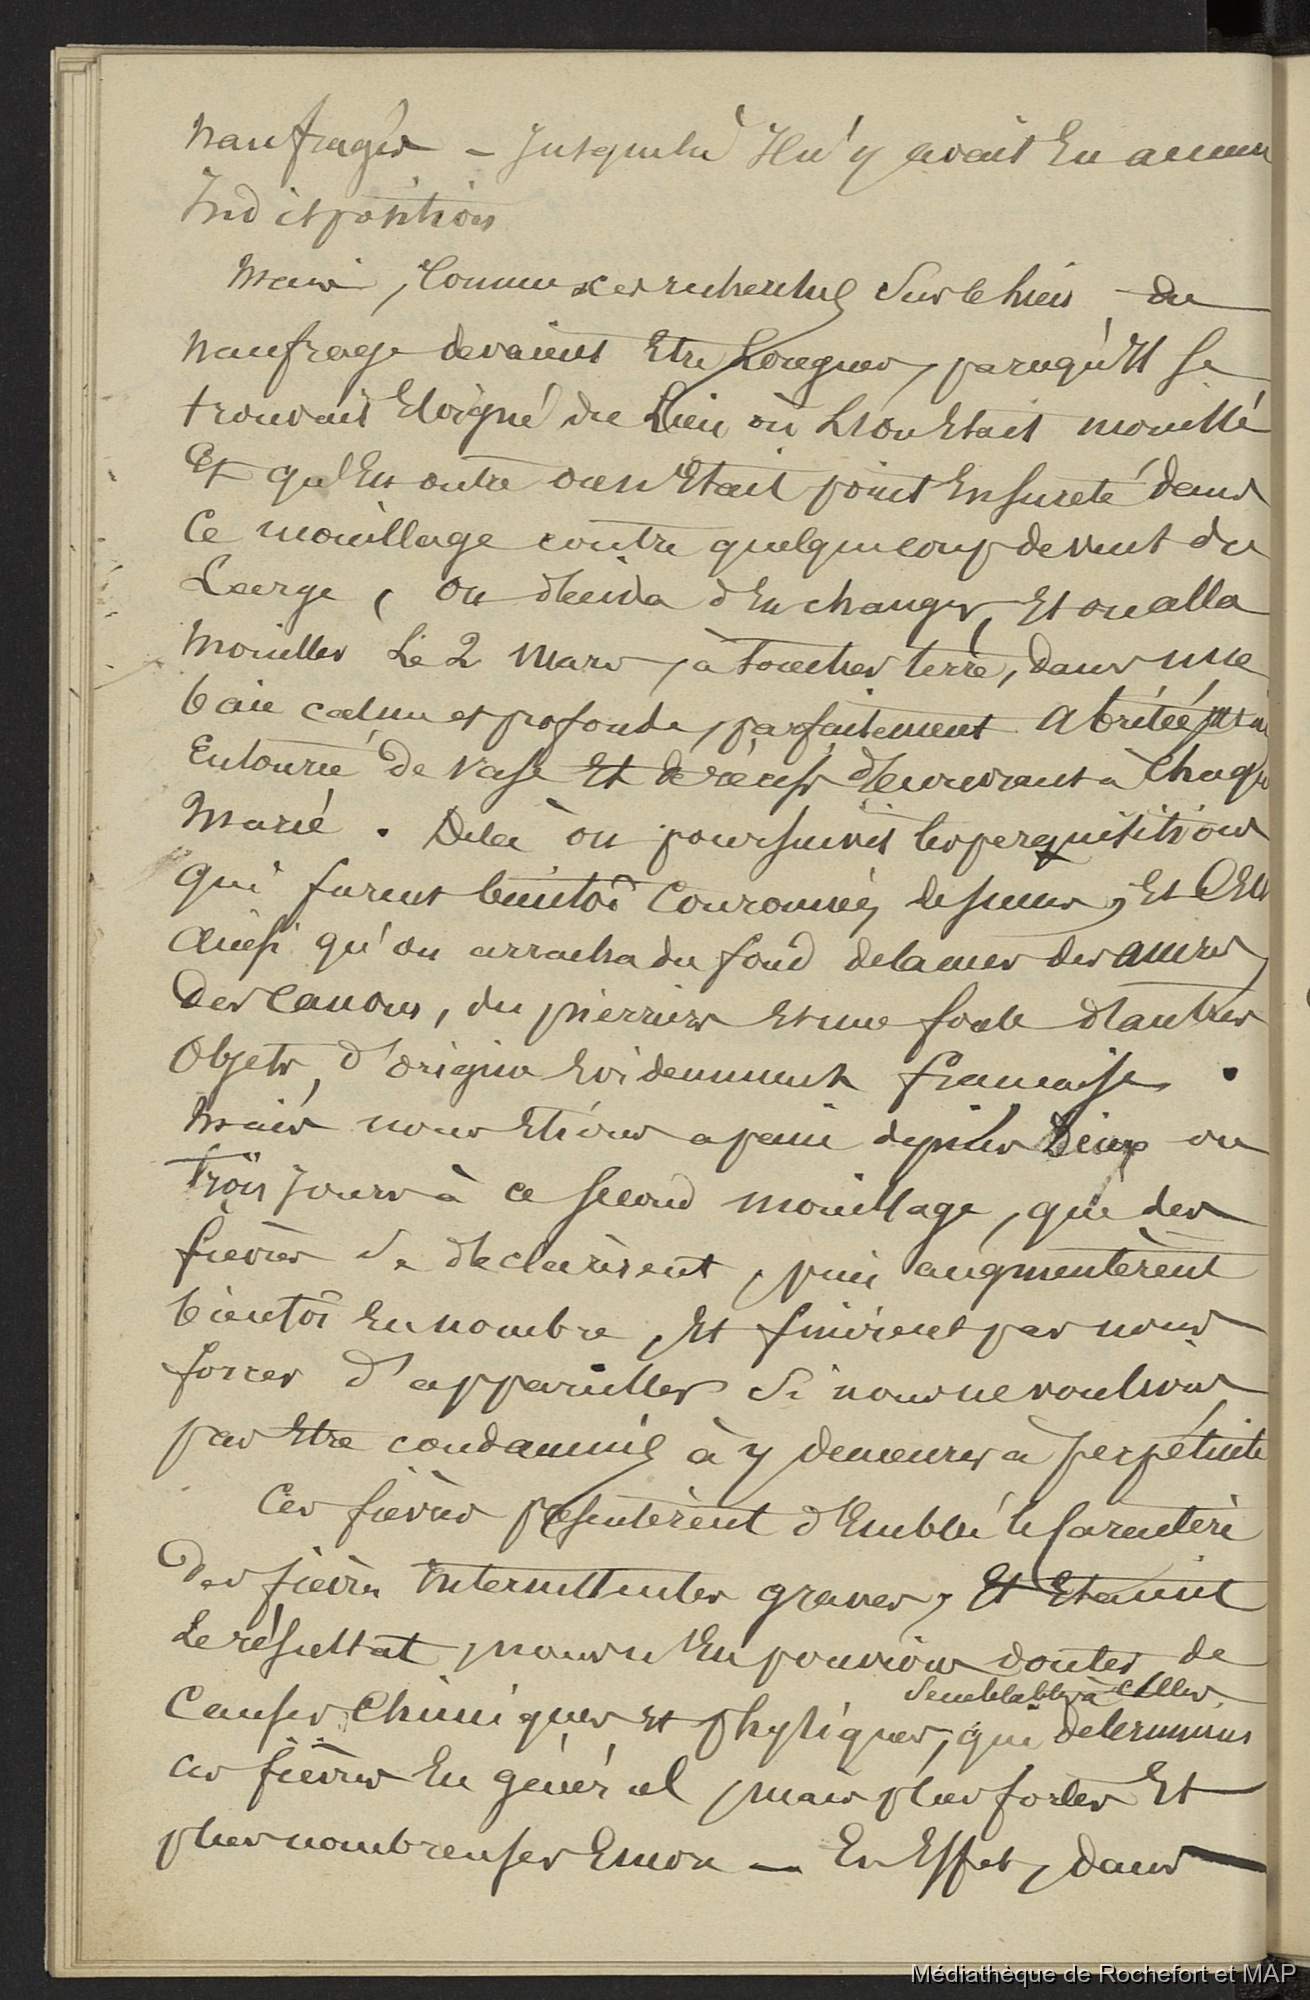 naufragés – Jusque là Il n'y avait Eu aucune
Indisposition
Mais, Comme les recherches Sur le lieu du
naufrage devaient Etre Longues, parce qu'Il se
trouvait Eloigné du Lieu où L'on Etait mouillé
Et qu'En outre on n'Etait point En sureté dans
Ce mouillage contre quelque coup de vent du
Large, on décida d'En changer, Et on alla
Mouiller Le 2 Mars, à toucher terre, dans une
baie calme et profonde, parfaitement Abritée,
Entourée de Vase Et de récifs découvrant à Chaque
Marée. De là on poursuivit les perquisitions
qui furent bientôt Couronnées de succès, Et C'Est
Ainsi qu'on arracha du fond de la mer des ancres
Des Canons, du pierriers Et une foule d'autres
Objets, d'origine Evidemment française.
Mais nous Etions a peine depuis Deux ou
Trois Jours à ce second mouillage, que des
fièvres Se déclarèrent, puis augmentèrent
bientôt En nombre, Et finirent par nous
forcer d'appareiller Si nous ne voulions
pas Etre condamnés à y demeurer à perpétuité
Ces fièvres présentèrent d'Emblée le Caractère
Des fièvres Intermittentes graves, Et Etaient
Le résultat, nous n'En pouvions douter de
Semblables à Celles
Causes Chimiques Et physiques, qui determinent
ces fièvres En général, mais plus fortes Et
plus nombreuses Encor — En Effet, dans
Médiathèque de Rochefort et MAP